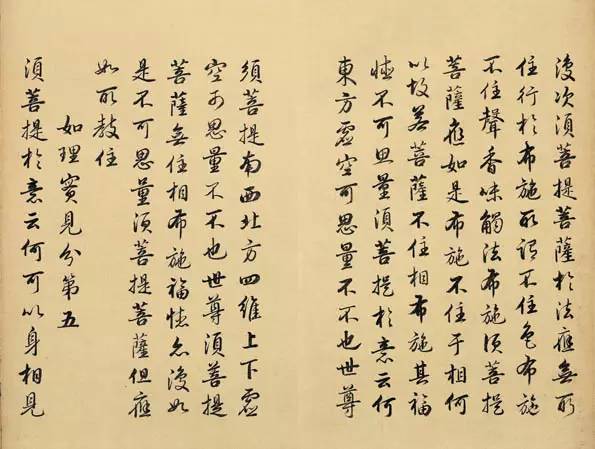 復次須菩提菩薩於法應無所
住行於布施所謂不住色布施
不住聲香味觸法布施須菩提
菩薩應如是布施不住于相何
以故若菩薩不住相布施其福
德不可思量須菩提於意云何
東方虛空可思量不不也世尊
須菩提南西北方四維上下虛
空可思量不不也世尊須菩提
菩薩無住相布施福德亦復如
是不可思量須菩提菩薩但應
如所教住
如理實見分第五
須菩提於意云何可以身相見